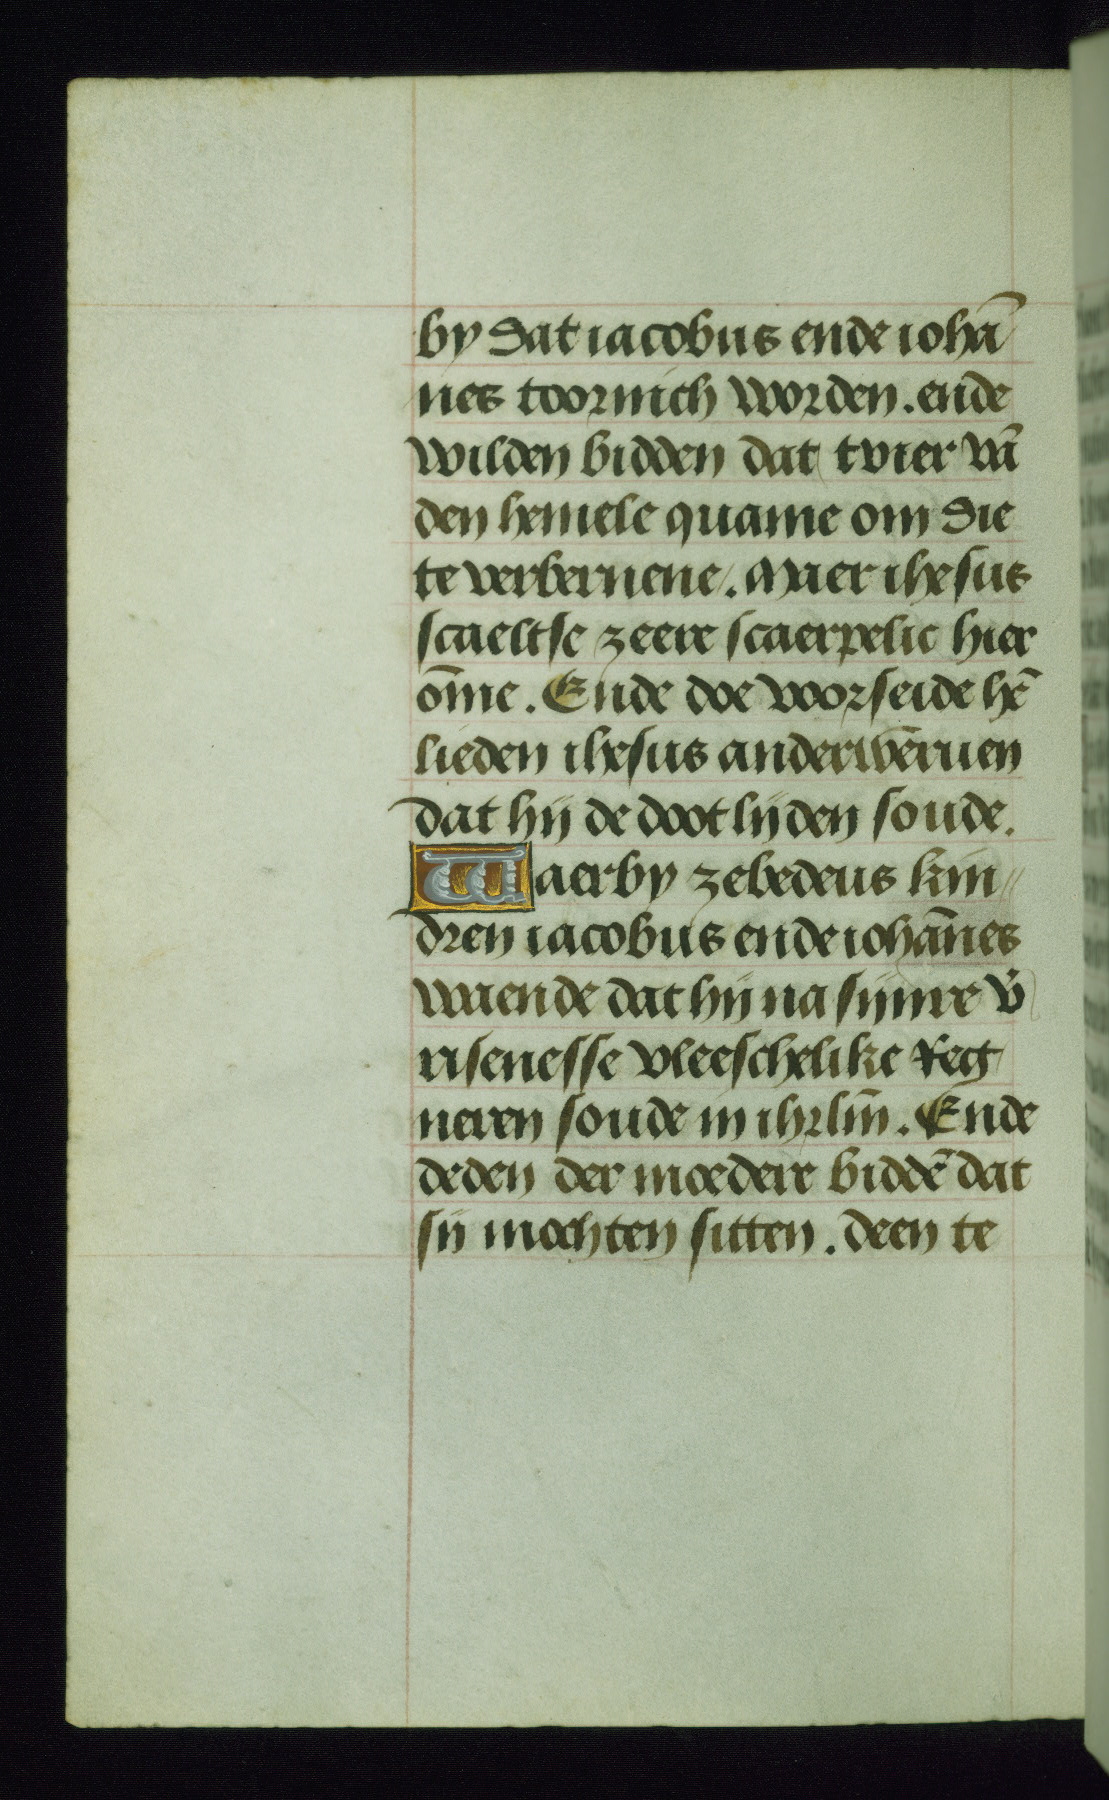 by dat iacobus ende iohā
nes toornich worden. ende
wilden bidden dat tvier vā
den hemele quame om die
te verbernene. Maer ihesus
scaeltse zeere scaerpelic hier
om̄e. Ende doe voorseide hē
lieden ihesus anderwēruen
dat hij de doot lijden soude.
Waerby zebedeus kin
dren iacobus ende iohān̄es
waende dat hij na sijnre v̓
risenesse vleeschelike reg
neren soude in ihrl̄m. Ende
deden der moedere biddē dat
sij mochten sitten. deen te